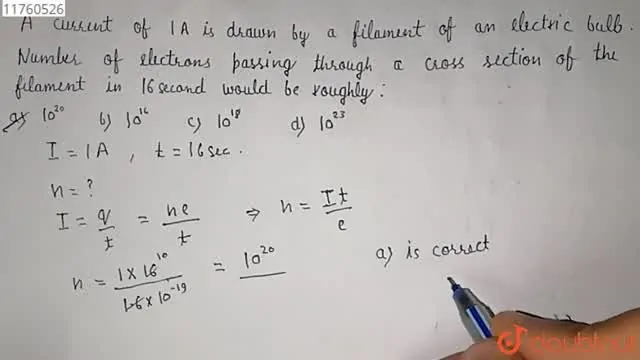 11760526
A current of 1A is drawn by a filament of an electric bulb.
Number of electrons passing through a cross section of the
filament in 16 second would be roughly:
a) 10^20 b) 10^16 c) 10^18 d) 10^23
I = 1A , t = 16 sec.
n = ?
I = q/t = ne/t ⇒ n = It/e
n = 1 × 16^10 / 1.6 × 10^-19 = 10^20
a) is correct
doubtnut